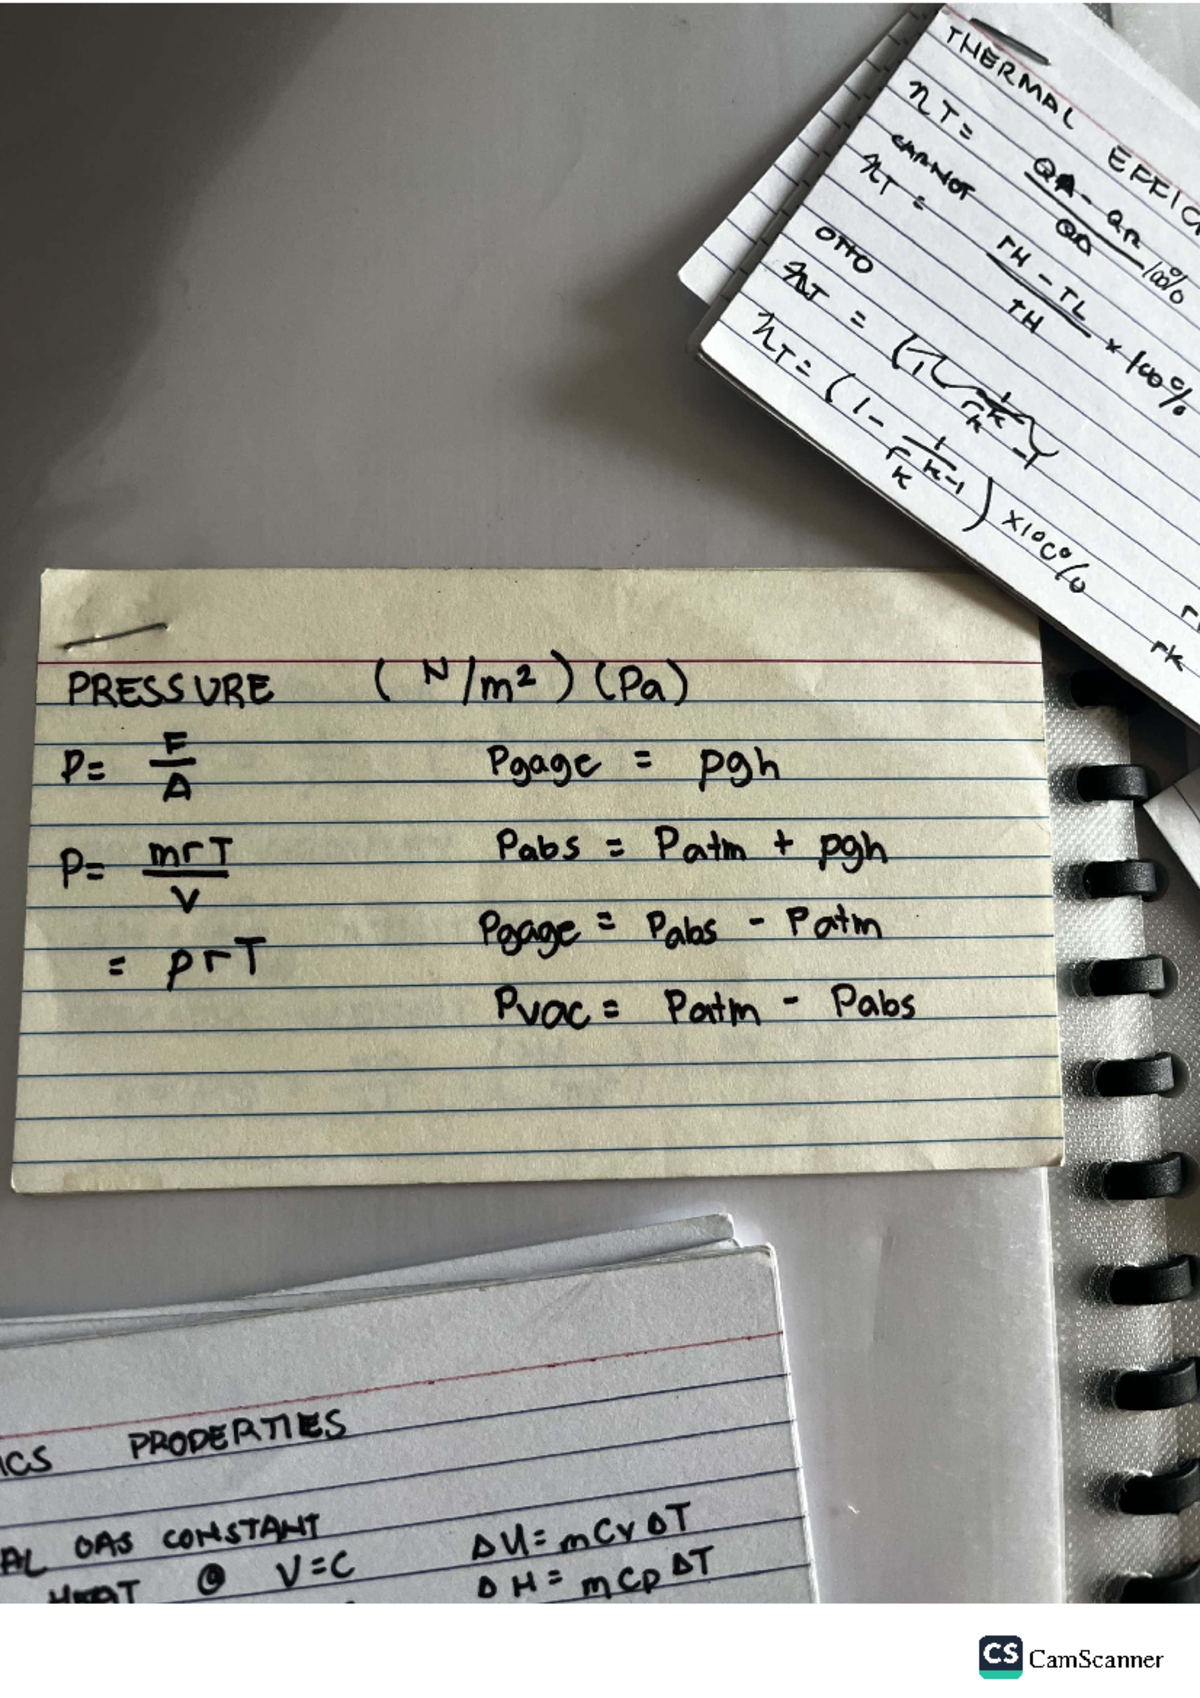 THERMAL EFFIC
ηT = QA - QR / QA 100%
CARNOT
ηT = TH - TL / TH × 100%
OTTO
ηT =
ηT = (1 - 1 / rk k-1) ×100%
rk
PRESSURE (N/m²) (Pa)
P = F / A
Pgage = ρgh
P = mrT / V
Pabs = Patm + ρgh
= ρrT
Pgage = Pabs - Patm
Pvac = Patm - Pabs
ICS PROPERTIES
AL GAS CONSTANT
ΔU = mCvΔT
HEAT @ V=C
ΔH = mCpΔT
CS CamScanner